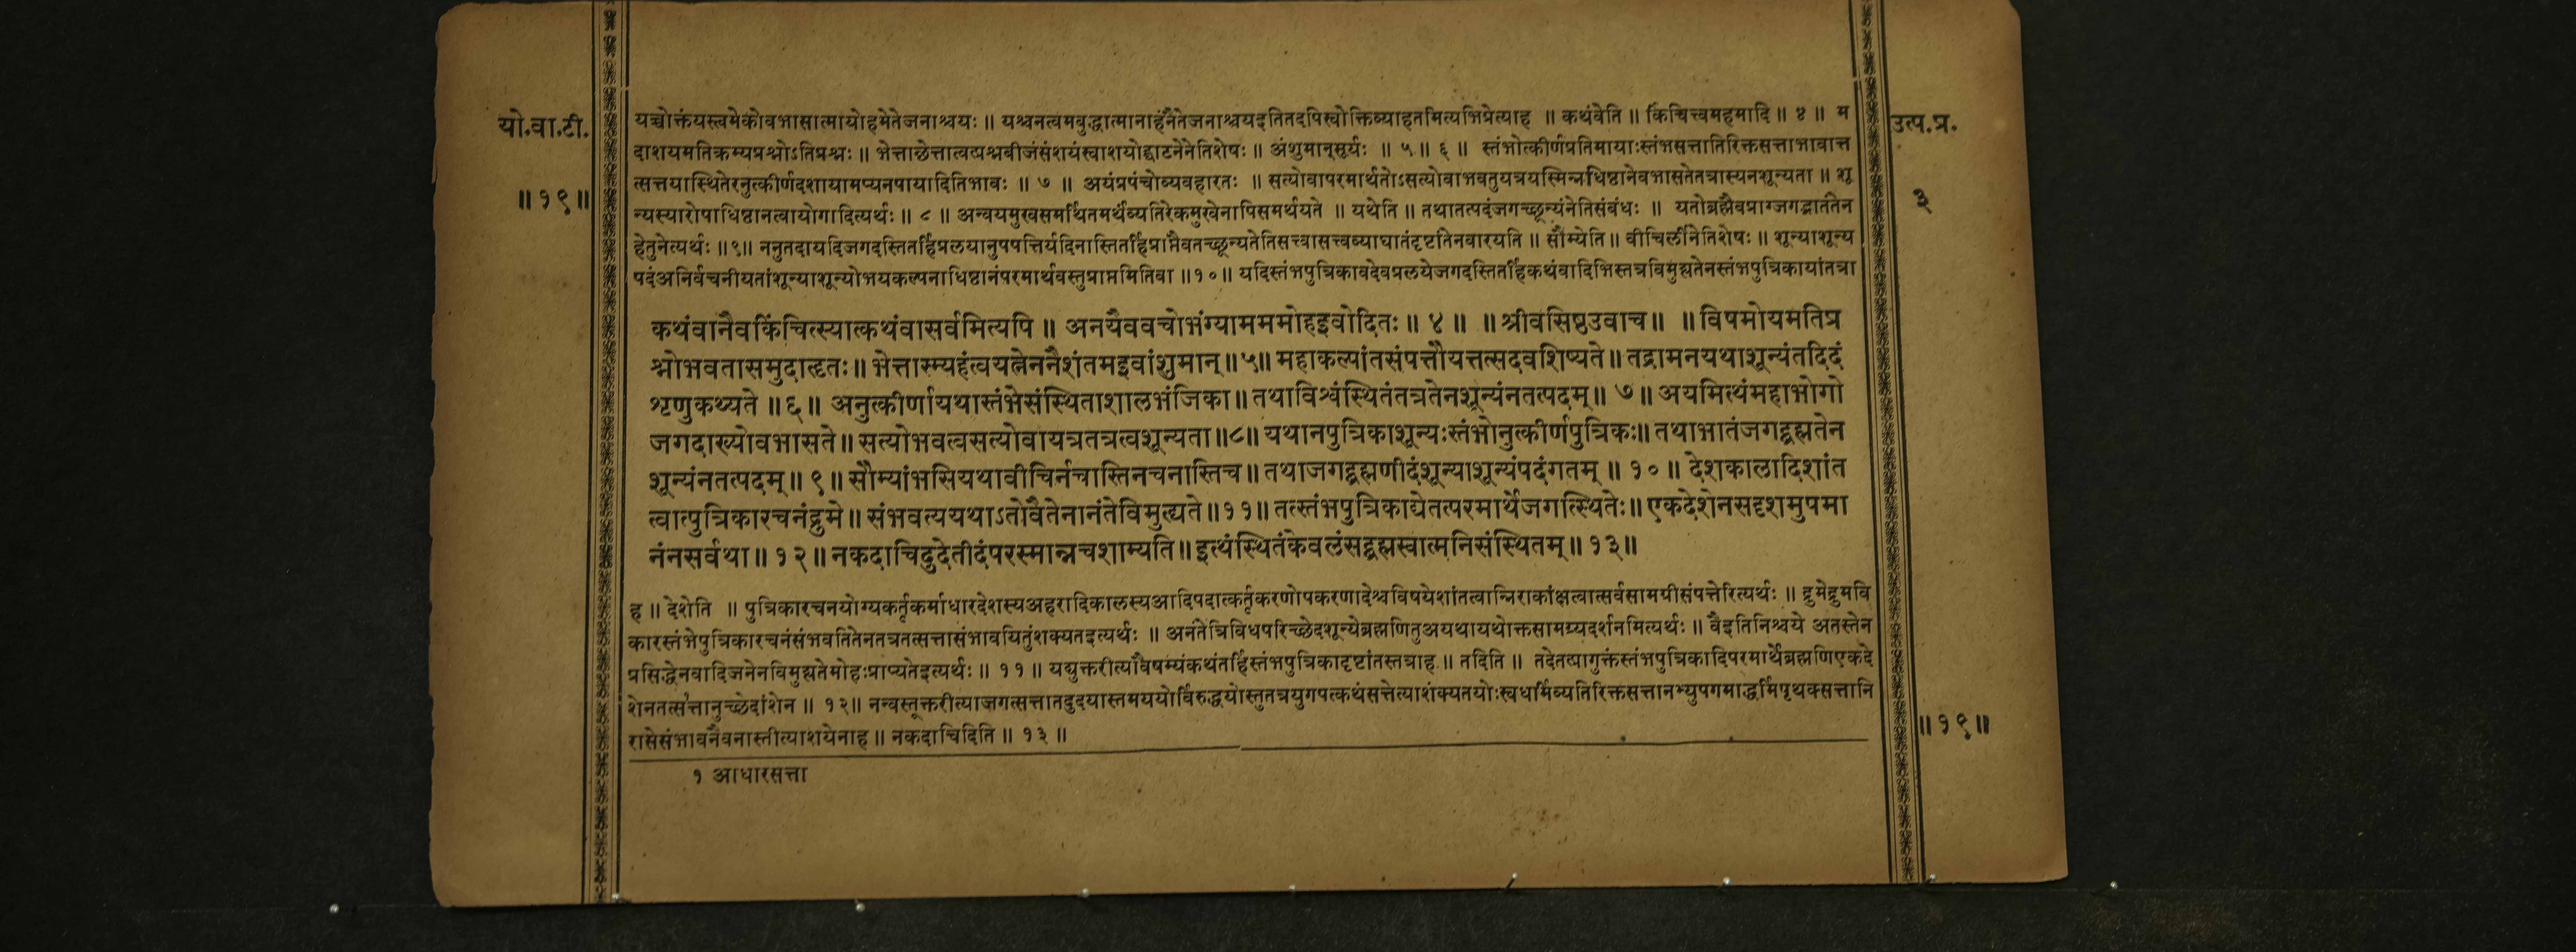 यो.वा.टी.
॥१९॥
यच्चोक्तंयस्त्वमेकोवभासात्मायोहमेतेजनाश्चयः ॥ यश्चनत्वमबुद्धात्मानाहंनैतेजनाश्चयइतितदपिस्वोक्तिव्याहतमित्यभिप्रेत्याह ॥ कथंवेति ॥ किंचित्त्वमहमादि ॥ ४ ॥ म
दाशयमतिक्रम्यप्रश्नोऽतिप्रश्नः ॥ भेत्ताछेत्तात्वत्प्रश्नबीजंसंशयंस्वाशयोद्घाटनेनेतिशेषः ॥ अंशुमान्सूर्यः ॥ ५ ॥ ६ ॥ स्तंभोत्कीर्णप्रतिमायाःस्तंभसत्तातिरिक्तसत्ताभावात्त
त्सत्तयास्थितेरनुत्कीर्णदशायामप्यनपायादितिभावः ॥ ७ ॥ अयंप्रपंचोव्यवहारतः ॥ सत्योवापरमार्थतोऽसत्योवाभवतुयत्रयस्मिन्नधिष्ठानेवभासतेतत्रास्यनशून्यता ॥ शू
न्यस्यारोपाधिष्ठानत्वायोगादित्यर्थः ॥ ८ ॥ अन्वयमुखसमर्थितमर्थंव्यतिरेकमुखेनापिसमर्थयते ॥ यथेति ॥ तथातत्पदंजगच्छून्यंनेतिसंबंधः ॥ यतोब्रह्मैवप्राग्जगद्भातंतेन
हेतुनेत्यर्थः ॥९॥ ननुतदायदिजगदस्तितर्हिप्रलयानुपपत्तिर्यदिनास्तितर्हिप्राप्तैवतच्छून्यतेतिसत्त्वासत्त्वव्याघातंदृष्टांतेनवारयति ॥ सौम्येति ॥ वीचिर्लीनेतिशेषः ॥ शून्याशून्य
पदंअनिर्वचनीयतांशून्याशून्योभयकल्पनाधिष्ठानंपरमार्थवस्तुप्राप्तमितिवा ॥१०॥ यदिस्तंभपुत्रिकावदेवप्रलयेजगदस्तितर्हिकथंवादिभिस्तत्रविमुह्यतेनस्तंभपुत्रिकायांतत्रा
कथंवानैवकिंचित्स्यात्कथंवासर्वमित्यपि ॥ अनयैववचोभंग्यामममोहइवोदितः ॥ ४ ॥ ॥ श्रीवसिष्ठउवाच ॥ ॥ विषमोयमतिप्र
श्नोभवतासमुदाहृतः ॥ भेत्तास्म्यहंत्वयत्नेननैशंतमइवांशुमान् ॥५॥ महाकल्पांतसंपत्तौयत्तत्सदवशिष्यते ॥ तद्रामनयथाशून्यंतदिदं
शृणुकथ्यते ॥ ६ ॥ अनुत्कीर्णायथास्तंभेसंस्थिताशालभंजिका ॥ तथाविश्वंस्थितंतत्रतेनशून्यंनतत्पदम् ॥ ७ ॥ अयमित्थंमहाभोगो
जगदाख्योवभासते ॥ सत्योभवत्वसत्योवायत्रतत्रत्वशून्यता ॥८॥ यथानपुत्रिकाशून्यःस्तंभोनुत्कीर्णपुत्रिकः ॥ तथाभातंजगद्ब्रह्मतेन
शून्यंनतत्पदम् ॥ ९ ॥ सौम्यांभसियथावीचिर्नचास्तिनचनास्तिच ॥ तथाजगद्ब्रह्मणीदंशून्याशून्यंपदंगतम् ॥ १० ॥ देशकालादिशांत
त्वात्पुत्रिकारचनंद्रुमे ॥ संभवत्ययथाऽतोवैतेनानंतेविमुह्यते ॥११॥ तत्स्तंभपुत्रिकाद्येतत्परमार्थेजगत्स्थितेः ॥ एकदेशेनसदृशमुपमा
नंनसर्वथा ॥ १२ ॥ नकदाचिदुदेतीदंपरस्मान्नचशाम्यति ॥ इत्थंस्थितंकेवलंसद्ब्रह्मस्वात्मनिसंस्थितम् ॥ १३ ॥
ह ॥ देशेति ॥ पुत्रिकारचनयोग्यकर्तृकर्माधारदेशस्यअहरादिकालस्यआदिपदात्कर्तृकरणोपकरणादेश्चविषयेशांतत्वान्निराकांक्षत्वात्सर्वसामग्रीसंपत्तेरित्यर्थः ॥ द्रुमेद्रुमवि
कारस्तंभेपुत्रिकारचनंसंभवतितेनतत्रतत्सत्तासंभावयितुंशक्यतइत्यर्थः ॥ अनंतेत्रिविधपरिच्छेदशून्येब्रह्मणितुअयथायथोक्तसामग्र्यदर्शनमित्यर्थः ॥ वैइतिनिश्चये अतस्तेन
प्रसिद्धेनवादिजनेनविमुह्यतेमोहःप्राप्यतेइत्यर्थः ॥ ११ ॥ यद्युक्तरीत्यावैषम्यंकथंतर्हिस्तंभपुत्रिकादृष्टांतस्तत्राह ॥ तदिति ॥ तदेतत्प्रागुक्तंस्तंभपुत्रिकादिपरमार्थेब्रह्मणिएकदे
शेनतत्स१त्तानुच्छेदांशेन ॥ १२॥ नन्वस्तूक्तरीत्याजगत्सत्तातदुदयास्तमययोर्विरुद्धयोस्तुतत्रयुगपत्कथंसत्तेत्याशंक्यतयोःस्वधर्मिव्यतिरिक्तसत्तानभ्युपगमाद्धर्मिपृथक्सत्तानि
रासेसंभावनैवनास्तीत्याशयेनाह ॥ नकदाचिदिति ॥ १३ ॥
१ आधारसत्ता
उत्प.प्र.
३
॥१९॥